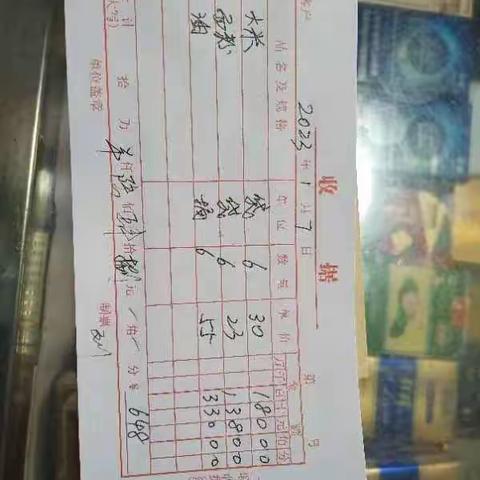 收据
2023年1月7日
第 号
品名及规格 单位 数量 单价 万千百十元角分
大米 袋 6 30 18000
面粉 袋 6 23 13800
油 桶 6 55 33000
拾 万 仟 佰 拾 捌元 / 角 / 分 ¥ 648
单位盖章 制票